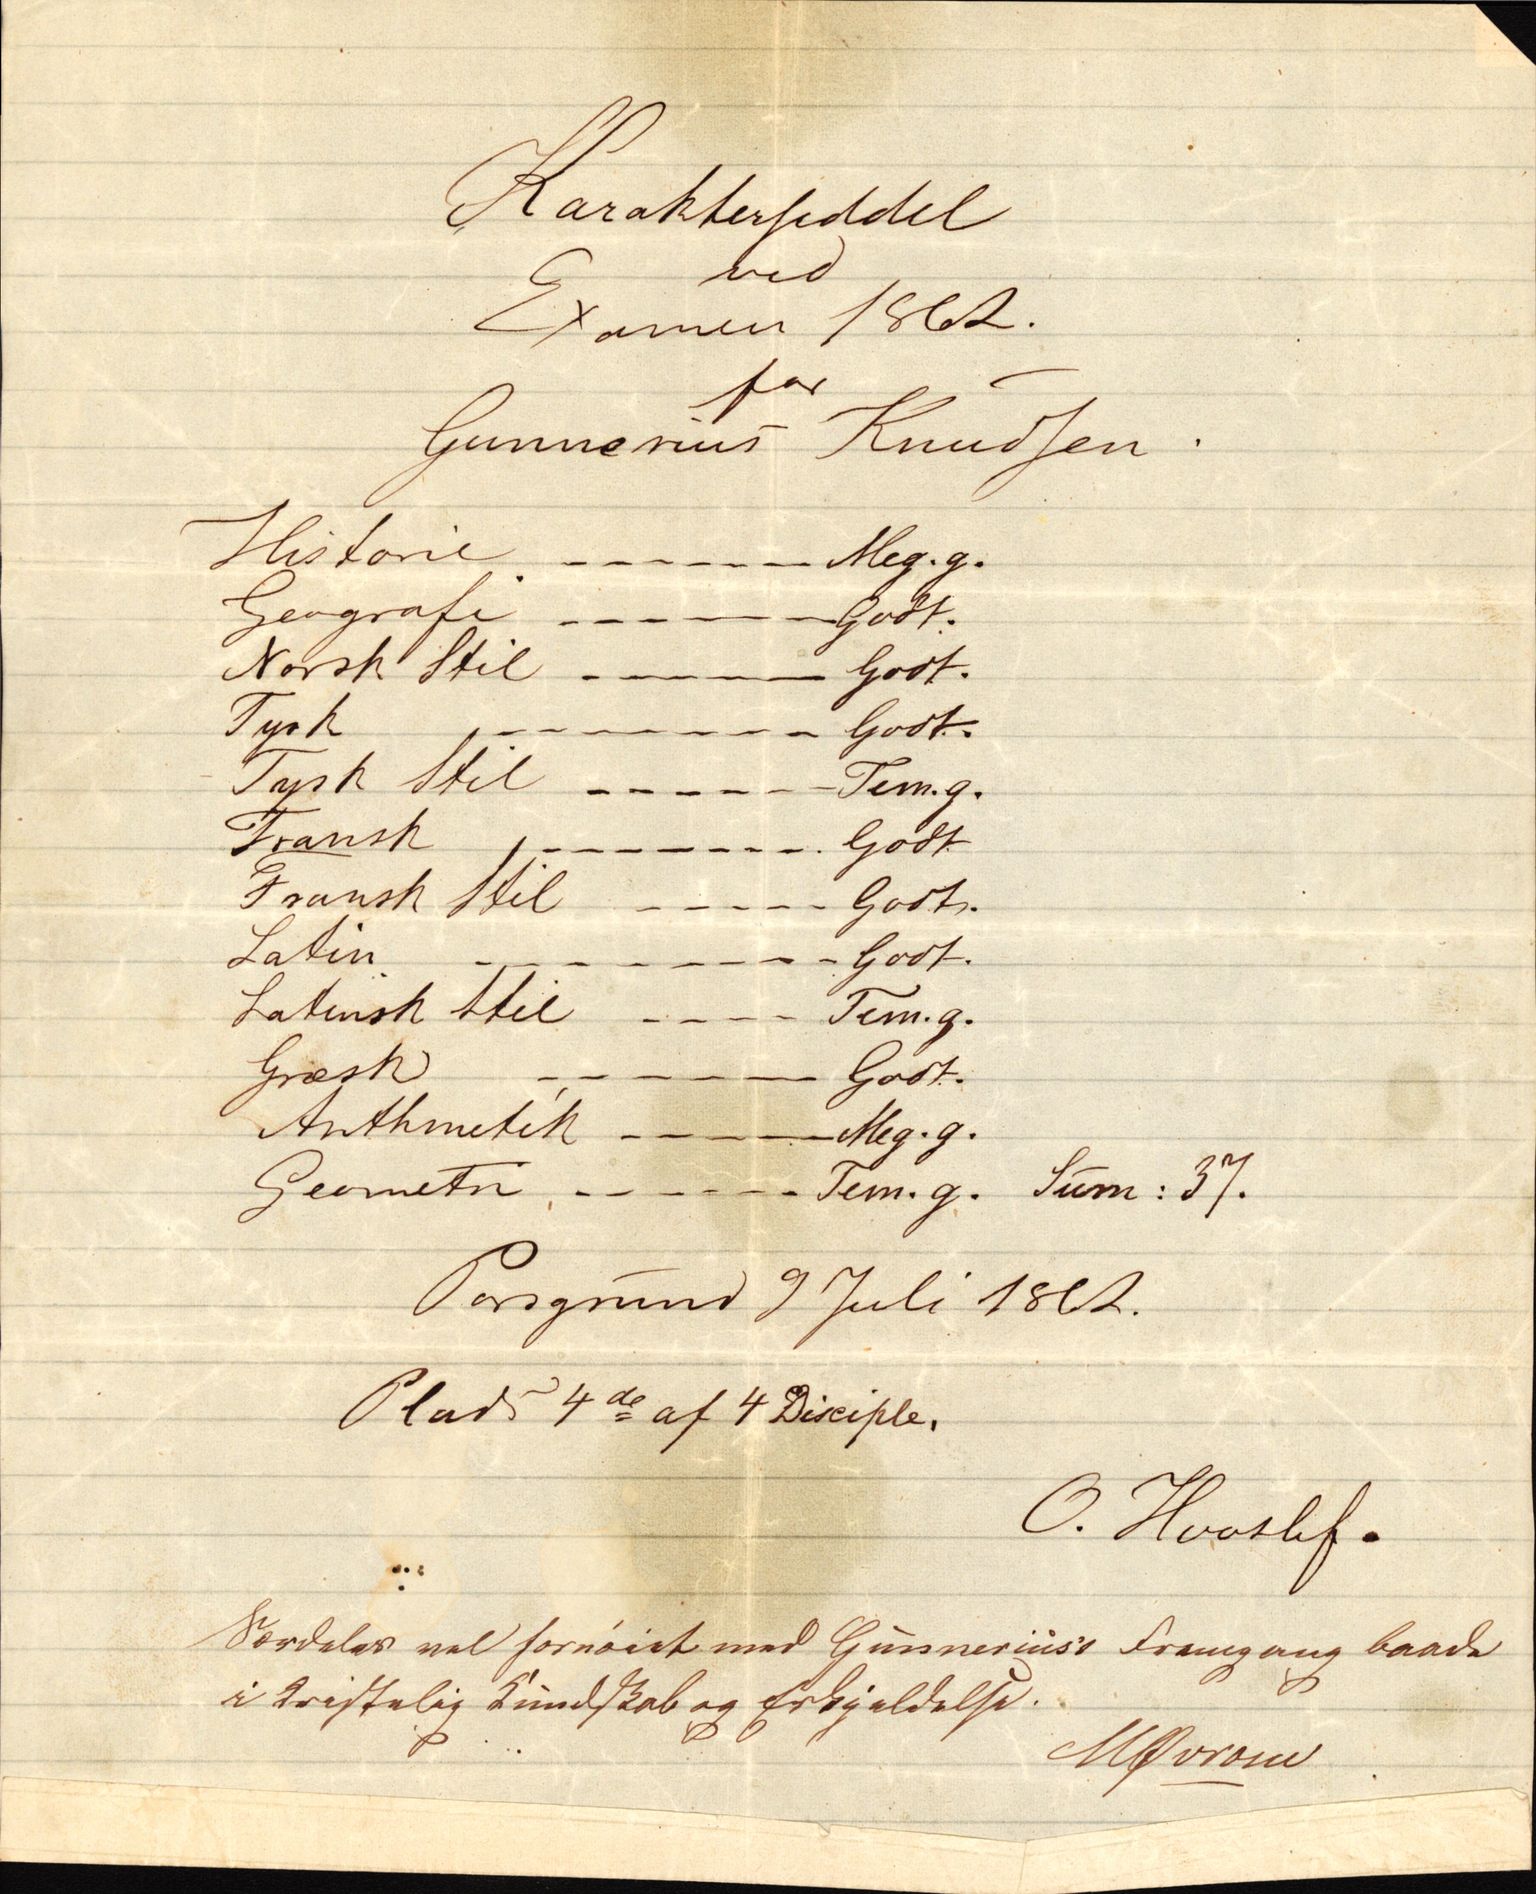 Karakterseddel
ved
Examen 1862.
for
Gunnerius Knudsen.
Historie ------- Meg. g.
Geografi ------ Godt.
Norsk Stil ------ Godt.
Tysk ------- Godt.
Tysk Stil ------ Tem. g.
Fransk ------- Godt
Fransk Stil ----- Godt.
Latin -------- Godt.
Latinsk Stil ---- Tem. g.
Græsk ------ Godt.
Arithmetik ----- Meg. g.
Geometri ------ Tem. g. Sum: 37.
Porsgrund 9 Juli 1862.
Plads 4de af 4 Disciple.
O. Hvoslef.
Særdeles vel fornøiet med Gunnerius's Fremgang baade
i kristelig Kundskab og